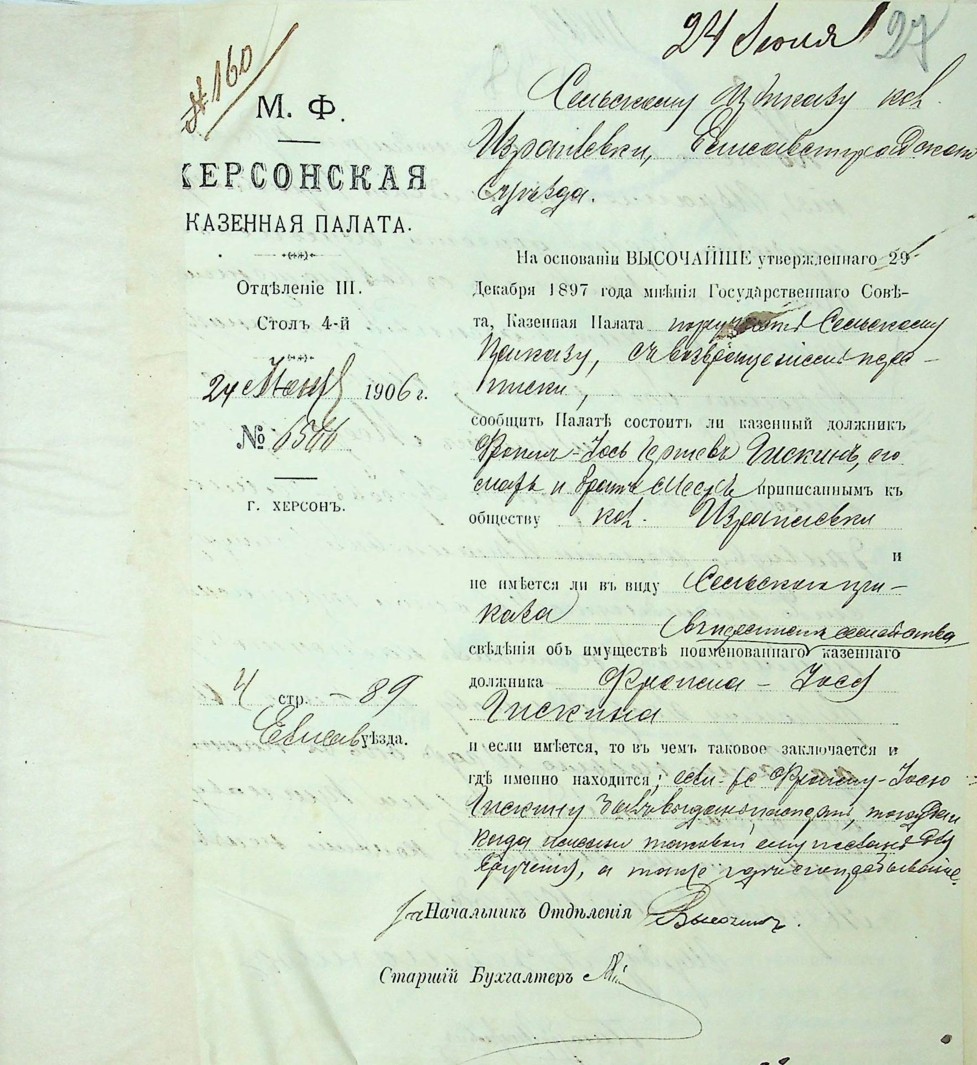 № 160
М. Ф.
ХЕРСОНСКАЯ
КАЗЕННАЯ ПАЛАТА.
Отдѣленіе III.
Столъ 4-й
24 1906 г.
№
г. ХЕРСОНЪ.
4 стр. — 89
Елисав уѣзда.
24 Іюля 27
Сельскому Приказу кол.
Израилевки, Елисаветградскаго
уѣзда.
На основаніи ВЫСОЧАЙШЕ утвержденнаго 29
Декабря 1897 года мнѣнія Государственнаго Совѣ-
та, Казенная Палата поручаетъ Сельскому
Приказу, съ возвращеніемъ пере-
писки,
сообщить Палатѣ состоитъ ли казенный должникъ
Фроимъ-Іось Гискинъ, его
мать и братъ приписаннымъ къ
обществу кол. Израилевки
и
не имѣется ли въ виду Сельскаго при-
каза
свѣдѣнія объ имуществѣ поименованнаго казеннаго
должника Фроима - Іося
Гискина
и если имѣется, то въ чемъ таковое заключается и
гдѣ именно находится; Фроиму-Іосю
Гискину
когда таковой ему
а также
Начальникъ Отдѣленія
Старшій Бухгалтеръ